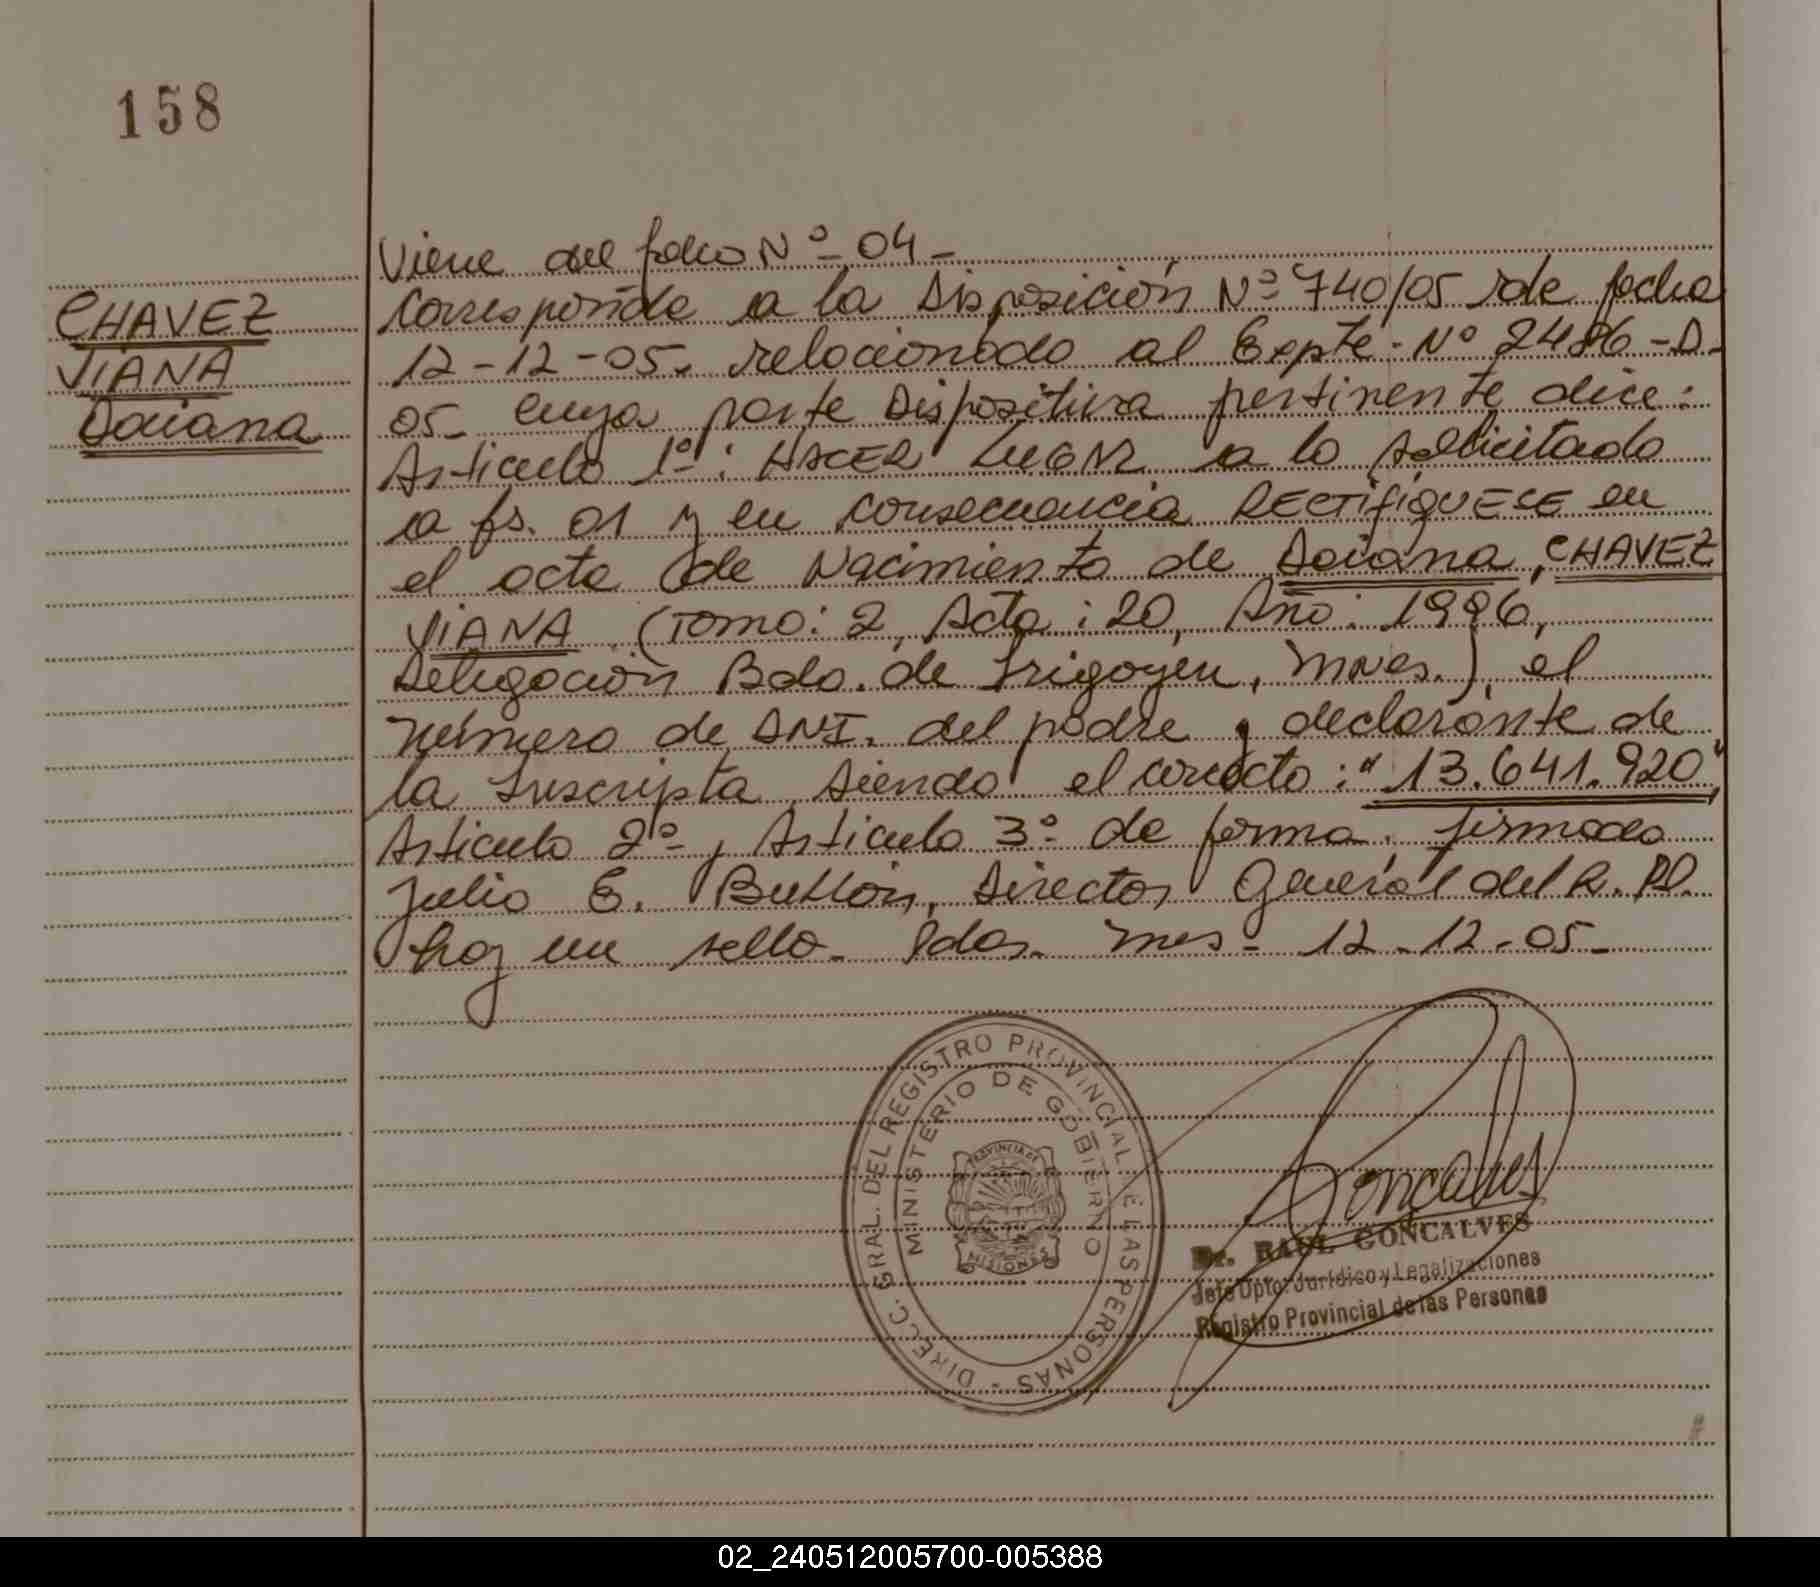 158
CHAVEZ
VIANA
Daiana
Viene del folio Nº 04-
Corresponde a la Disposición Nº 740/05 de fecha
12-12-05. relacionado al Expte. Nº 2486-D-
05- cuya parte Dispositiva pertinente dice:
Artículo 1º: HACER LUGAR a lo solicitado
a fs. 01 y en consecuencia RECTIFIQUESE en
el acta de Nacimiento de Daiana, CHAVEZ
VIANA (Tomo: 2, Acta: 20, Año: 1996,
Delegación Bdo. de Irigoyen, Mnes.), el
número de DNI. del padre y declarante de
la Inscripta siendo el correcto: "13.641.920"
Artículo 2º, Artículo 3º de forma. firmado
Julio E. Director General del R. P.P.
hay un sello. Pdas. Mnes- 12-12-05-
DIRECC. GRAL. DEL REGISTRO PROVINCIAL DE LAS PERSONAS -
MINISTERIO DE GOBIERNO
PROVINCIA DE
MISIONES
Goncalves
Dr. RAUL GONCALVES
Jefe Dpto. Jurídico y Legalizaciones
Registro Provincial de las Personas
02_240512005700-005388